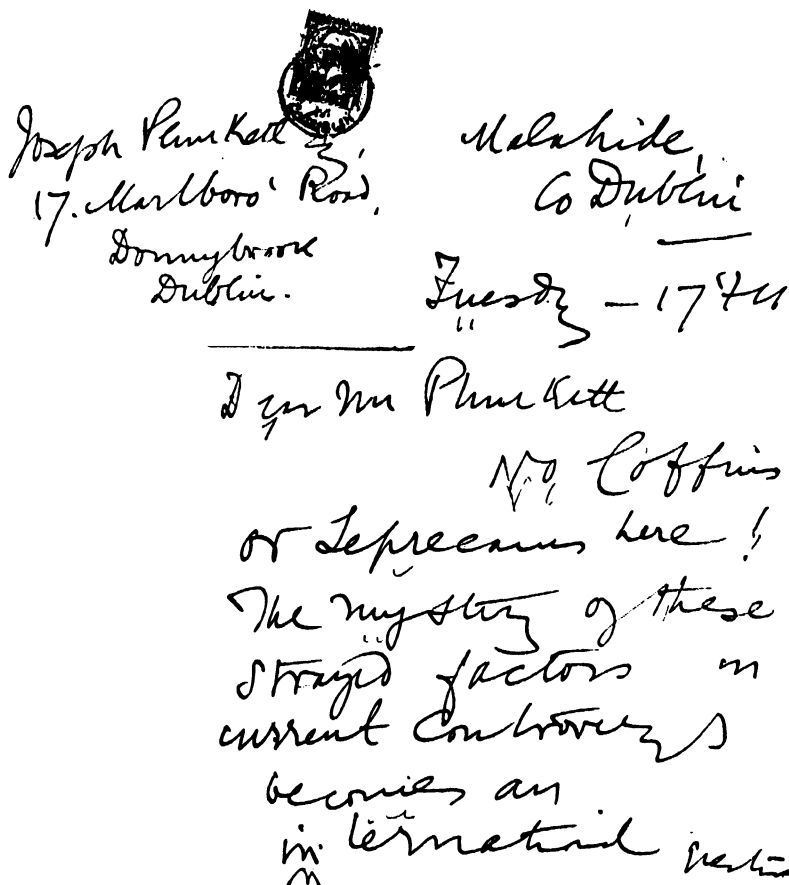 Joseph Plunkett
17. Marlboro' Road,
Donnybrook
Dublin.
Malahide,
Co Dublin
Tuesdy — 17
Dear Mr Plunkett
No Coffins
or Leprecauns here!
The mystery of these
strayed factors in
current controversy
becomes an
international question